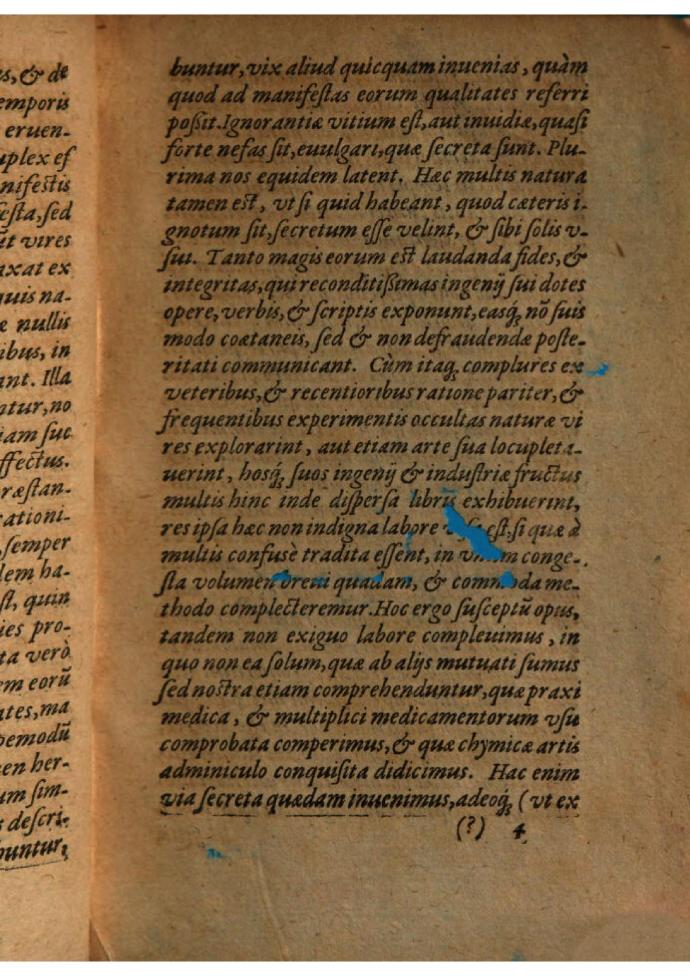 s, & de
emporis
eruen-
uplex es
nifestis
festa, sed
ut vires
axat ex
quis na-
æ nullis
ibus, in
ant. Illa
ntur, no
iam sue
ffectus.
ræstan-
rationi-
semper
lem ha-
st, quin
ies pro-
ta verò
em eorū
ates, ma
pemodū
en her-
um sim-
s descri-
buntur,
buntur, vix aliud quicquam inuenias, quàm
quod ad manifestas eorum qualitates referri
possit. Ignorantiæ vitium est, aut inuidiæ, quasi
forte nefas sit, euulgari, quæ secreta sunt. Plu-
rima nos equidem latent. Hæc multis natura
tamen est, vt si quid habeant, quod cæteris i-
gnotum sit, secretum esse velint, & sibi solis v-
sui. Tanto magis eorum est laudanda fides, &
integritas, qui reconditissimas ingenij sui dotes
opere, verbis, & scriptis exponunt, easq́; nō suis
modo coætaneis, sed & non defraudendæ poste-
ritati communicant. Cùm itaq; complures ex
veteribus, & recentioribus ratione pariter, &
frequentibus experimentis occultas naturæ vi
res explorarint, aut etiam arte sua locupleta-
uerint, hosq́; suos ingenij & industriæ fructus
multis hinc inde dispersa libris exhibuerint,
res ipsa hæc non indigna labore est, si quæ à
multis confusè tradita essent, in conge-
sta volumen breui quadam, & commoda me-
thodo complecteremur. Hoc ergo susceptū opus,
tandem non exiguo labore compleuimus, in
quo non ea solum, quæ ab alijs mutuati sumus
sed nostra etiam comprehenduntur, quæ praxi
medica, & multiplici medicamentorum vsu
comprobata comperimus, & quæ chymicæ artis
adminiculo conquisita didicimus. Hac enim
via secreta quædam inuenimus, adeoq́; (vt ex
(?) 4